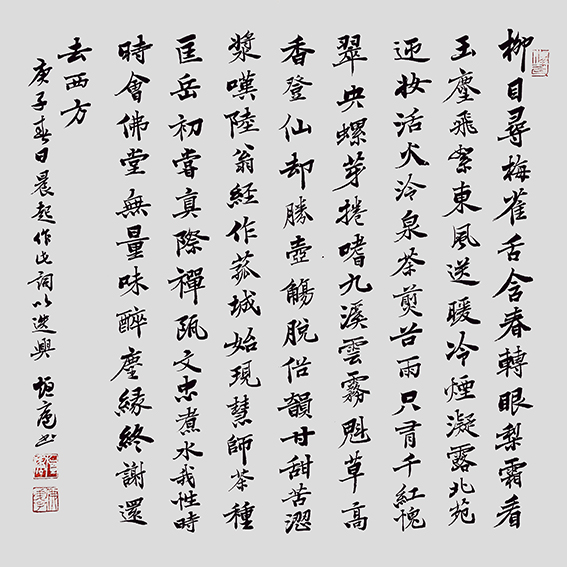 柳目尋梅雀舌含春轉眼梨霜看
玉塵飛絮東風送暖冷煙凝露北苑
迎妝活火泠泉茶煎谷雨只肯千紅愧
翠央螺芽捲嗜九溪雲霧魁草高
香登仙却勝壺觴脫俗韻甘甜苦澀
漿嘆陸翁經作菰城始現慧師茶種
匡岳初嘗真際禪瓯文忠煮水我性時
時會佛堂無量味醉塵緣終謝還
去西方
庚子春日晨起作此詞以遣興